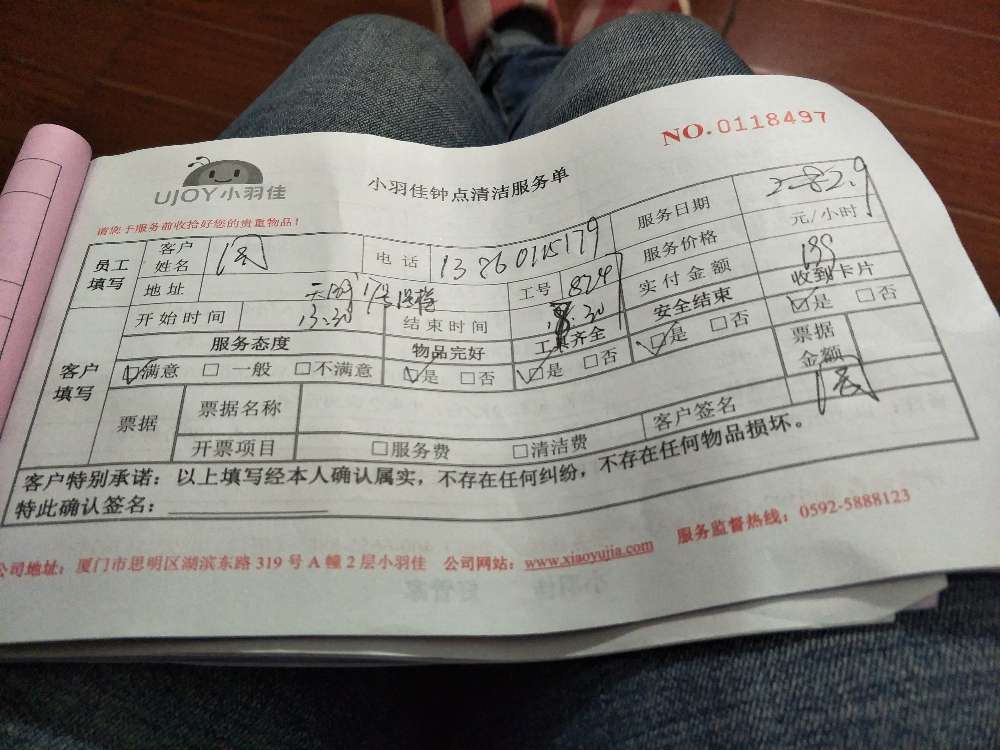 NO.0118497
UJOY小羽佳
小羽佳钟点清洁服务单
请您于服务前收拾好您的贵重物品！
员工填写 客户姓名 电话 13860115179 服务日期
地址 工号 824 服务价格 元/小时
客户填写 开始时间 13:30 结束时间 实付金额
服务态度 物品完好 工具齐全 安全结束 收到卡片
☑满意 □一般 □不满意 ☑是 □否 ☑是 □否 ☑是 □否 ☑是 □否
票据 票据名称 客户签名 票据金额
开票项目 □服务费 □清洁费
客户特别承诺：以上填写经本人确认属实，不存在任何纠纷，不存在任何物品损坏。
特此确认签名：
公司地址：厦门市思明区湖滨东路319号A幢2层小羽佳 公司网站：www.xiaoyujia.com 服务监督热线：0592-5888123